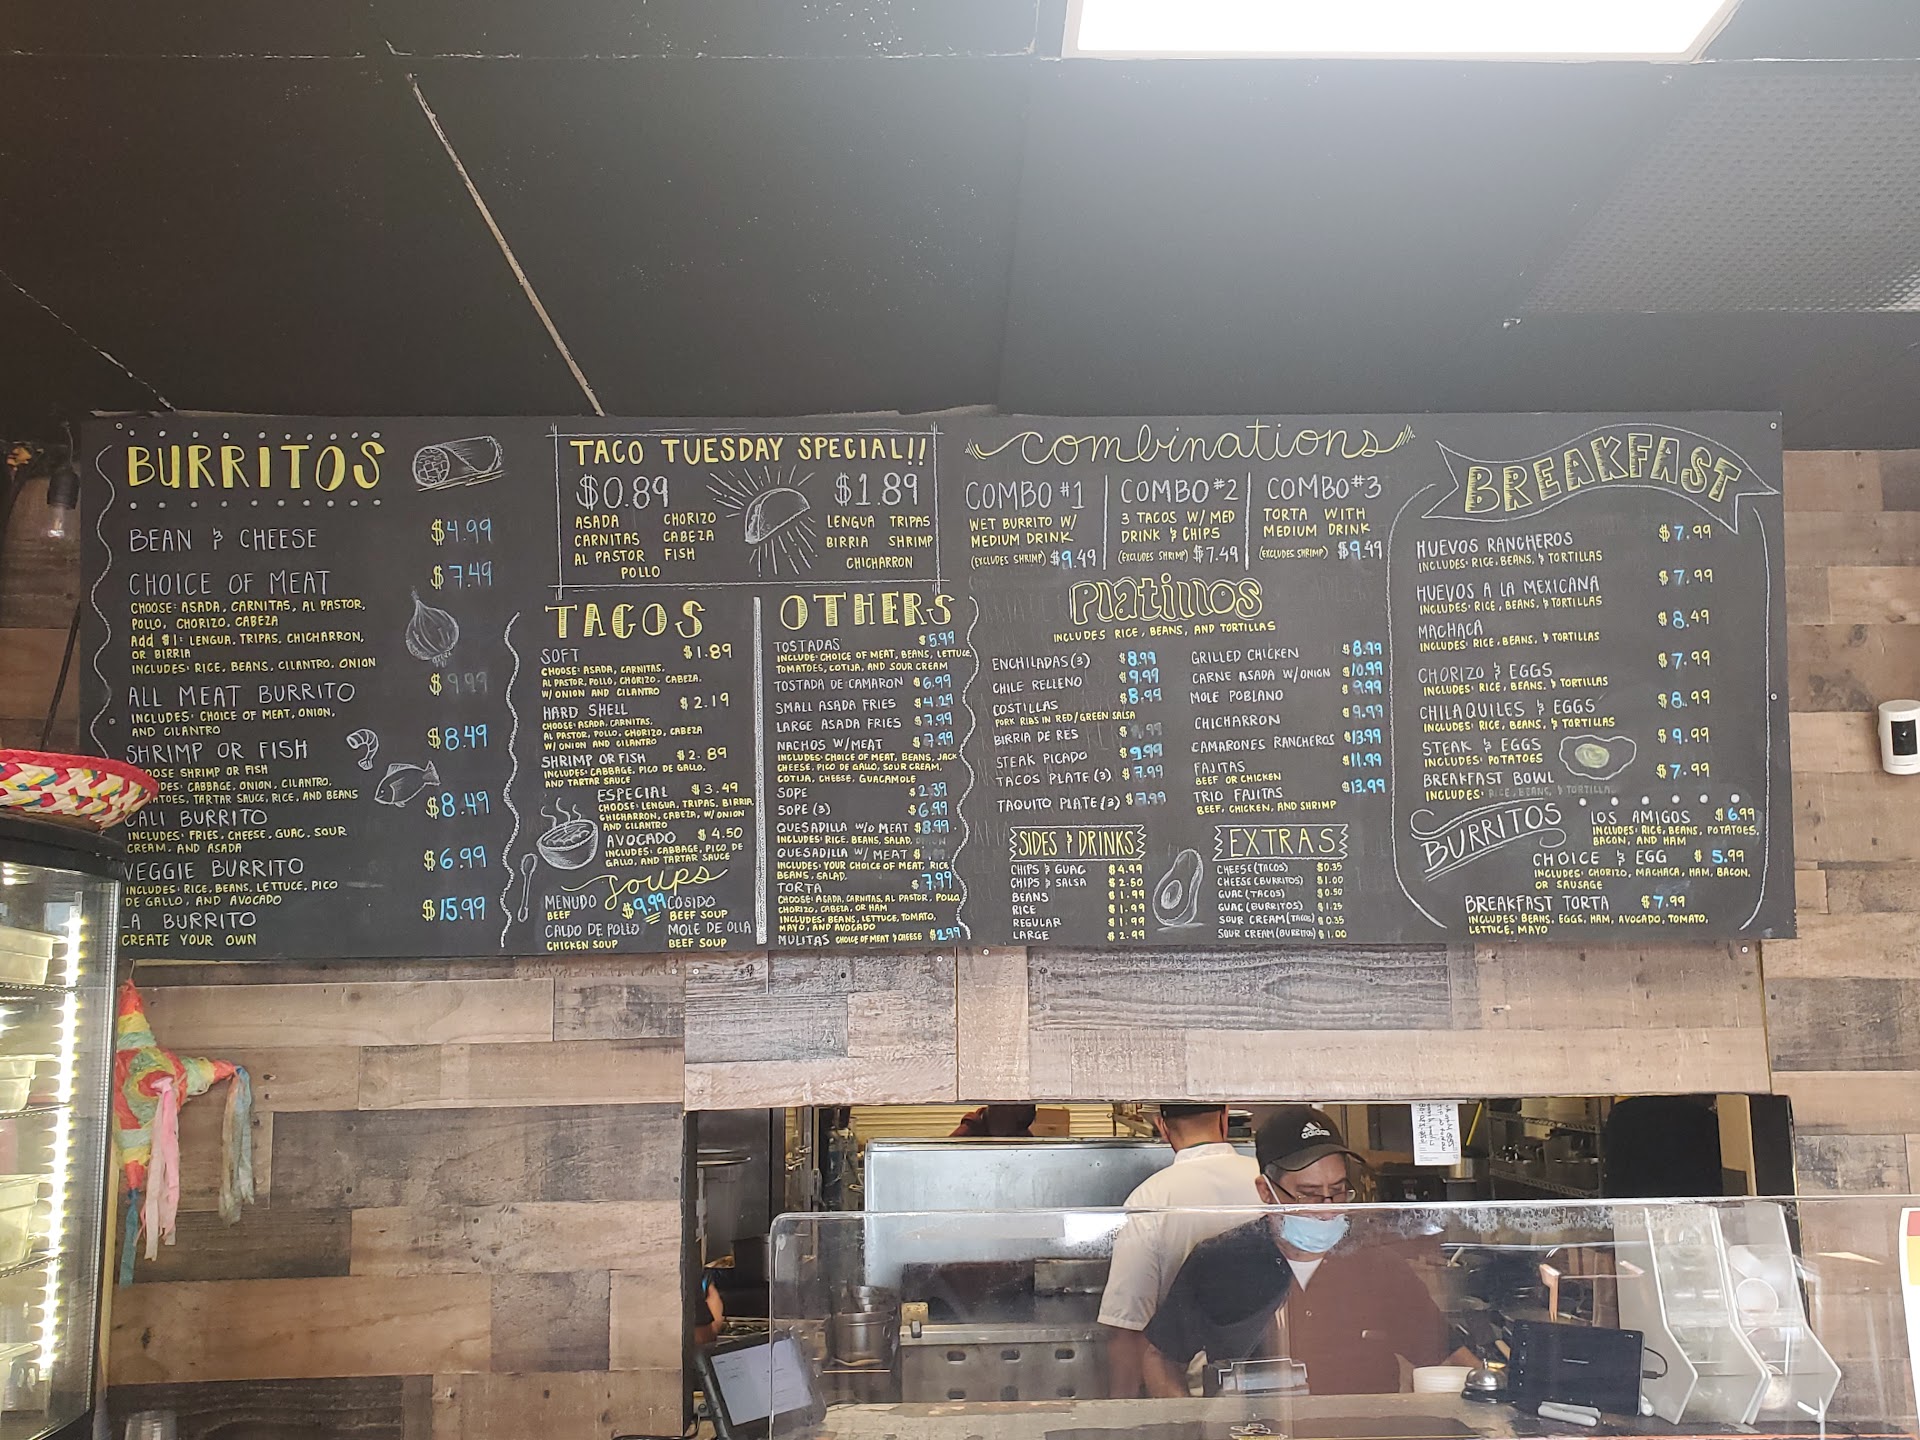 BURRITOS
BEAN & CHEESE $4.99
CHOICE OF MEAT $7.49
CHOOSE: ASADA, CARNITAS, AL PASTOR,
POLLO, CHORIZO, CABEZA
Add $1: LENGUA, TRIPAS, CHICHARRON,
OR BIRRIA
INCLUDES: RICE, BEANS, CILANTRO, ONION
ALL MEAT BURRITO $9.99
INCLUDES: CHOICE OF MEAT, ONION,
AND CILANTRO
SHRIMP OR FISH $8.49
SHRIMP OR FISH
CABBAGE, ONION, CILANTRO,
TARTAR SAUCE, RICE, AND BEANS
CALI BURRITO $8.49
INCLUDES: FRIES, CHEESE, GUAC, SOUR
CREAM, AND ASADA
VEGGIE BURRITO $6.99
INCLUDES: RICE, BEANS, LETTUCE, PICO
DE GALLO, AND AVOCADO
LA BURRITO $15.99
CREATE YOUR OWN
TACO TUESDAY SPECIAL!!
$0.89
ASADA CHORIZO
CARNITAS CABEZA
AL PASTOR FISH
POLLO
$1.89
LENGUA TRIPAS
BIRRIA SHRIMP
CHICHARRON
TACOS
SOFT $1.89
CHOOSE: ASADA, CARNITAS,
AL PASTOR, POLLO, CHORIZO, CABEZA,
W/ONION AND CILANTRO
HARD SHELL $2.19
CHOOSE: ASADA, CARNITAS,
AL PASTOR, POLLO, CHORIZO, CABEZA
W/ONION AND CILANTRO
SHRIMP OR FISH $2.89
INCLUDES: CABBAGE, PICO DE GALLO,
AND TARTAR SAUCE
ESPECIAL $3.49
CHOOSE: LENGUA, TRIPAS, BIRRIA,
CHICHARRON, CABEZA, W/ONION
AND CILANTRO
AVOCADO $4.50
INCLUDES: CABBAGE, PICO DE
GALLO, AND TARTAR SAUCE
Soups
$9.99
MENUDO
BEEF
COSIDO
BEEF SOUP
CALDO DE POLLO
CHICKEN SOUP
MOLE DE OLLA
BEEF SOUP
OTHERS
TOSTADAS $5.99
INCLUDE: CHOICE OF MEAT, BEANS, LETTUCE,
TOMATOES, COTIJA, AND SOUR CREAM
TOSTADA DE CAMARON $6.99
SMALL ASADA FRIES $4.29
LARGE ASADA FRIES $7.99
NACHOS W/MEAT $7.99
INCLUDES: CHOICE OF MEAT, BEANS, JACK
CHEESE, PICO DE GALLO, SOUR CREAM,
COTIJA, CHEESE, GUACAMOLE
SOPE $2.39
SOPE (3) $6.99
QUESADILLA W/O MEAT $8.99
INCLUDES: RICE, BEANS, SALAD,
QUESADILLA W/ MEAT $
INCLUDES: YOUR CHOICE OF MEAT, RICE,
BEANS, SALAD,
TORTA $7.99
CHOOSE: ASADA, CARNITAS, AL PASTOR, POLLO,
CHORIZO, CABEZA, OR HAM
INCLUDES: BEANS, LETTUCE, TOMATO,
MAYO, AND AVOCADO
MULITAS CHOICE OF MEAT & CHEESE $2.99
Combinations
COMBO #1
WET BURRITO W/
MEDIUM DRINK
(EXCLUDES SHRIMP) $9.49
COMBO #2
3 TACOS W/ MED
DRINK & CHIPS
(EXCLUDES SHRIMP) $7.49
COMBO #3
TORTA WITH
MEDIUM DRINK
(EXCLUDES SHRIMP) $9.49
Platillos
INCLUDES RICE, BEANS, AND TORTILLAS
ENCHILADAS (3) $8.99
CHILE RELLENO $9.99
COSTILLAS $8.99
PORK RIBS IN RED/GREEN SALSA
BIRRIA DE RES
STEAK PICADO $9.99
TACOS PLATE (3) $7.99
TAQUITO PLATE (3) $7.99
GRILLED CHICKEN $8.99
CARNE ASADA W/ONION $10.99
MOLE POBLANO $9.99
CHICHARRON $9.99
CAMARONES RANCHEROS $13.99
FAJITAS $11.99
BEEF OR CHICKEN
TRIO FAJITAS $13.99
BEEF, CHICKEN, AND SHRIMP
SIDES & DRINKS
CHIPS & GUAC $4.99
CHIPS & SALSA $2.50
BEANS $1.99
RICE $1.99
REGULAR $1.99
LARGE $2.99
EXTRAS
CHEESE (TACOS) $0.35
CHEESE (BURRITOS) $1.00
GUAC (TACOS) $0.50
GUAC (BURRITOS) $1.25
SOUR CREAM (TACOS) $0.35
SOUR CREAM (BURRITOS) $1.00
BREAKFAST
HUEVOS RANCHEROS $7.99
INCLUDES: RICE, BEANS, & TORTILLAS
HUEVOS A LA MEXICANA $7.99
INCLUDES: RICE, BEANS, & TORTILLAS
MACHACA $8.49
INCLUDES: RICE, BEANS, & TORTILLAS
CHORIZO & EGGS $7.99
INCLUDES: RICE, BEANS, & TORTILLAS
CHILAQUILES & EGGS $8.99
INCLUDES: RICE, BEANS, & TORTILLAS
STEAK & EGGS $9.99
INCLUDES: POTATOES
BREAKFAST BOWL $7.99
INCLUDES: RICE, BEANS, & TORTILLAS
BURRITOS
LOS AMIGOS $6.99
INCLUDES: RICE, BEANS, POTATOES,
BACON, AND HAM
CHOICE & EGG $5.99
INCLUDES: CHORIZO, MACHACA, HAM, BACON,
OR SAUSAGE
BREAKFAST TORTA $7.99
INCLUDES: BEANS, EGGS, HAM, AVOCADO, TOMATO,
LETTUCE, MAYO
adidas